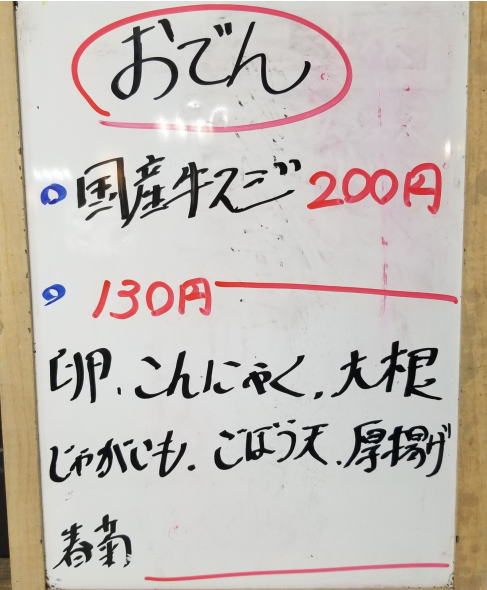 おでん
国産牛スジ 200円
130円
卵、こんにゃく、大根
じゃがいも、ごぼう天、厚揚げ
春菊